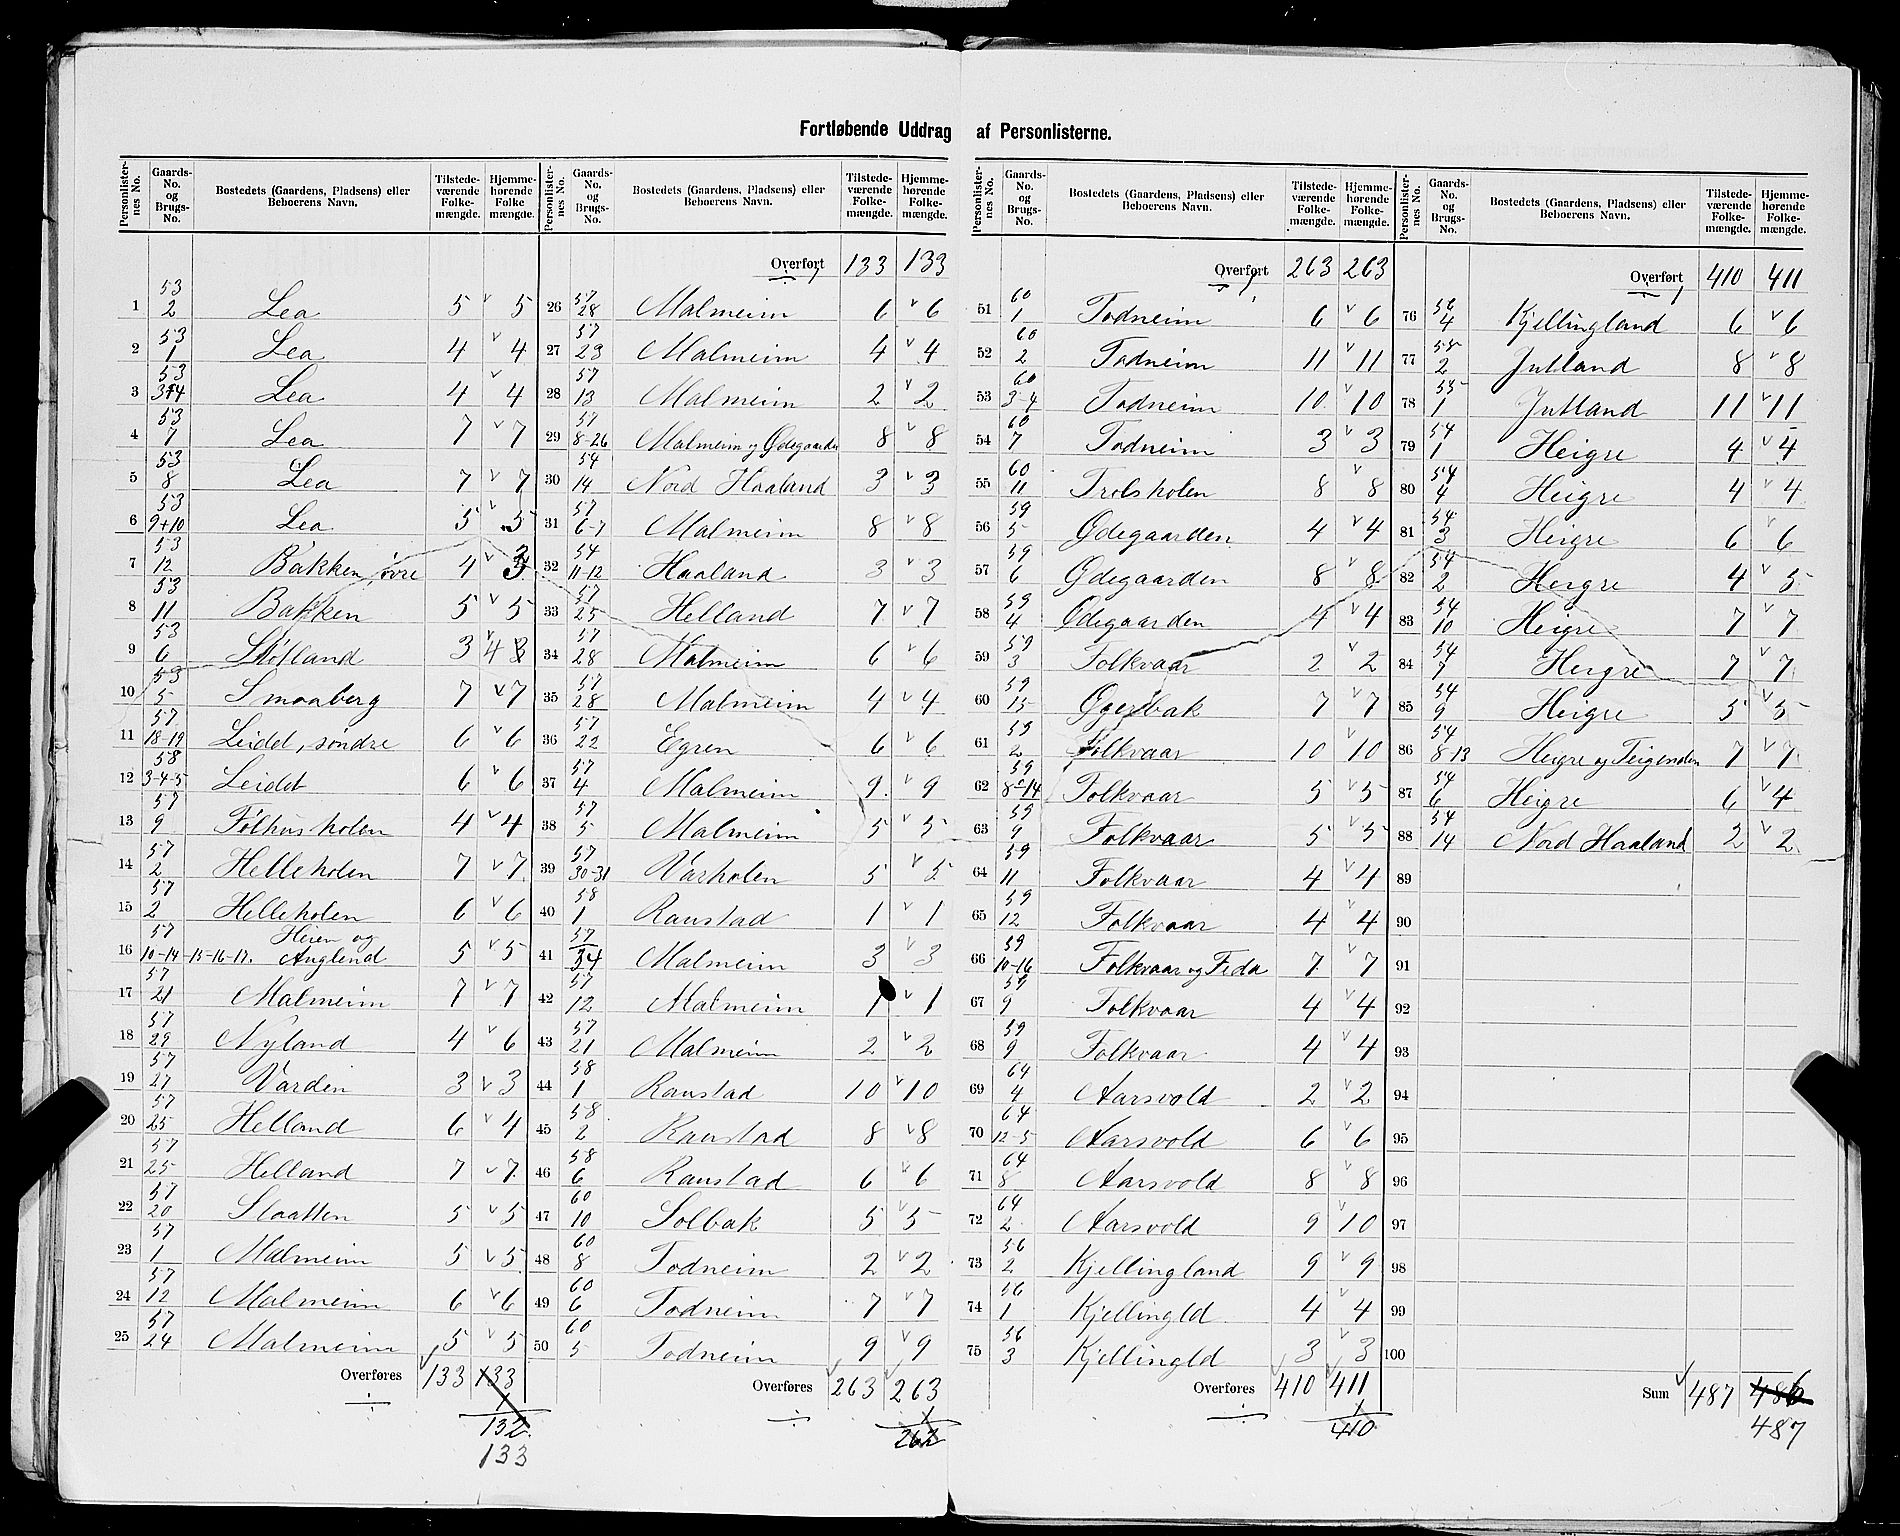 Fortløbende Uddrag af Personlisterne.
Personlisternes No. | Gaards-No. og Brugs-No. | Bostedets (Gaardens, Pladsens) eller Beboerens Navn. | Tilstedeværende Folkemængde. | Hjemmehørende Folkemængde.
1 | 53 2 | Lea | 5 | v 5
2 | 53 1 | Lea | 4 | v 4
3 | 53 3+4 | Lea | 4 | v 4
4 | 53 7 | Lea | 7 | v 7
5 | 53 8 | Lea | 7 | v 7
6 | 53 9+10 | Lea | 5 | v 5
7 | 53 12 | Bakken, øvre | 4 | v 3
8 | 53 11 | Bakken | 5 | v 5
9 | 53 6 | Skifland | 3 | v 4 3
10 | 53 5 | Smaaberg | 7 | v 7
11 | 57 18-19 | Leidet, søndre | 6 | v 6
12 | 58 3-4-5 | Leidet | 6 | v 6
13 | 57 9 | Følhusholen | 4 | v 4
14 | 57 2 | Helleholen | 7 | v 7
15 | 57 2 | Helleholen | 6 | v 6
16 | 57 10-14-15-16-17. | Heien og Auglend | 5 | v 5
17 | 57 21 | Malmeim | 7 | v 7
18 | 57 29 | Nyland | 4 | v 6
19 | 57 27 | Varden | 3 | v 3
20 | 57 25 | Helland | 6 | v 4
21 | 57 25 | Helland | 7 | v 7
22 | 57 20 | Slaatten | 5 | v 5
23 | 57 1 | Malmeim | 5 | v 5
24 | 57 12 | Malmeim | 6 | v 6
25 | 57 24 | Malmeim | 5 | v 5
Overføres | 133 | 133
1
132
133
Personlisternes No. | Gaards-No. og Brugs-No. | Bostedets (Gaardens, Pladsens) eller Beboerens Navn. | Tilstedeværende Folkemængde. | Hjemmehørende Folkemængde.
Overført | 133 | 133
26 | 57 28 | Malmeim | 6 | v 6
27 | 57 23 | Malmeim | 4 | v 4
28 | 57 13 | Malmeim | 2 | v 2
29 | 57 8-26 | Malmeim og Ødegaarden | 8 | v 8
30 | 54 14 | Nord Haaland | 3 | v 3
31 | 57 6-7 | Malmeim | 8 | v 8
32 | 54 11-12 | Haaland | 3 | v 3
33 | 57 25 | Helland | 7 | v 7
34 | 57 28 | Malmeim | 6 | v 6
35 | 57 28 | Malmeim | 4 | v 4
36 | 57 22 | Egren | 6 | v 6
37 | 57 4 | Malmeim | 9 | v 9
38 | 57 5 | Malmeim | 5 | v 5
39 | 57 30-31 | Varholen | 5 | v 5
40 | 58 1 | Raustad | 1 | v 1
41 | 57 34 | Malmeim | 3 | v 3
42 | 57 12 | Malmeim | 1 | v 1
43 | 57 21 | Malmeim | 2 | v 2
44 | 58 1 | Raustad | 10 | v 10
45 | 58 2 | Raustad | 8 | v 8
46 | 58 6 | Raustad | 6 | v 6
47 | 60 10 | Solbak | 5 | v 5
48 | 60 8 | Todneim | 2 | v 2
49 | 60 6 | Todneim | 7 | v 7
50 | 60 5 | Todneim | 9 | v 9
Overføres | 263 | 263
1
262
Personlisternes No. | Gaards-No. og Brugs-No. | Bostedets (Gaardens, Pladsens) eller Beboerens Navn. | Tilstedeværende Folkemængde. | Hjemmehørende Folkemængde.
Overført | 263 | 263
51 | 60 1 | Todneim | 6 | v 6
52 | 60 2 | Todneim | 11 | v 11
53 | 60 3-4 | Todneim | 10 | v 10
54 | 60 7 | Todneim | 3 | v 3
55 | 60 11 | Trolsholen | 8 | v 8
56 | 59 5 | Ødegaarden | 4 | v 4
57 | 59 6 | Ødegaarden | 8 | v 8
58 | 59 4 | Ødegaarden | 4 | v 4
59 | 59 3 | Folkvaar | 2 | v 2
60 | 59 15 | Øgersbak | 7 | v 7
61 | 59 2 | Folkvaar | 10 | v 10
62 | 59 8-14 | Folkvaar | 5 | v 5
63 | 59 9 | Folkvaar | 5 | v 5
64 | 59 11 | Folkvaar | 4 | v 4
65 | 59 12 | Folkvaar | 4 | v 4
66 | 59 10-16 | Folkvaar og Feda | 7 | v 7
67 | 59 9 | Folkvaar | 4 | v 4
68 | 59 9 | Folkvaar | 4 | v 4
69 | 64 4 | Aarsvold | 2 | v 2
70 | 64 12-5 | Aarsvold | 6 | v 6
71 | 64 8 | Aarsvold | 8 | v 8
72 | 64 2 | Aarsvold | 9 | v 10
73 | 56 2 | Kjellingland | 9 | v 9
74 | 56 1 | Kjellingld | 4 | v 4
75 | 56 3 | Kjellingld | 3 | v 3
Overføres | 410 | 411
1
410
Personlisternes No. | Gaards-No. og Brugs-No. | Bostedets (Gaardens, Pladsens) eller Beboerens Navn. | Tilstedeværende Folkemængde. | Hjemmehørende Folkemængde.
Overført | 410 | 411
76 | 56 4 | Kjellingland | 6 | v 6
77 | 55 2 | Jutland | 8 | v 8
78 | 55 1 | Jutland | 11 | v 11
79 | 54 1 | Heigre | 4 | v 4
80 | 54 4 | Heigre | 4 | v 4
81 | 54 3 | Heigre | 6 | v 6
82 | 54 2 | Heigre | 4 | v 5
83 | 54 10 | Heigre | 7 | v 7
84 | 54 7 | Heigre | 7 | v 7
85 | 54 9 | Heigre | 5 | v 5
86 | 54 8-13 | Heigre og Teigenden | 7 | v 7
87 | 54 6 | Heigre | 6 | v 4
88 | 54 14 | Nord Haaland | 2 | v 2
89
90
91
92
93
94
95
96
97
98
99
100
Sum | 487 | 486
487